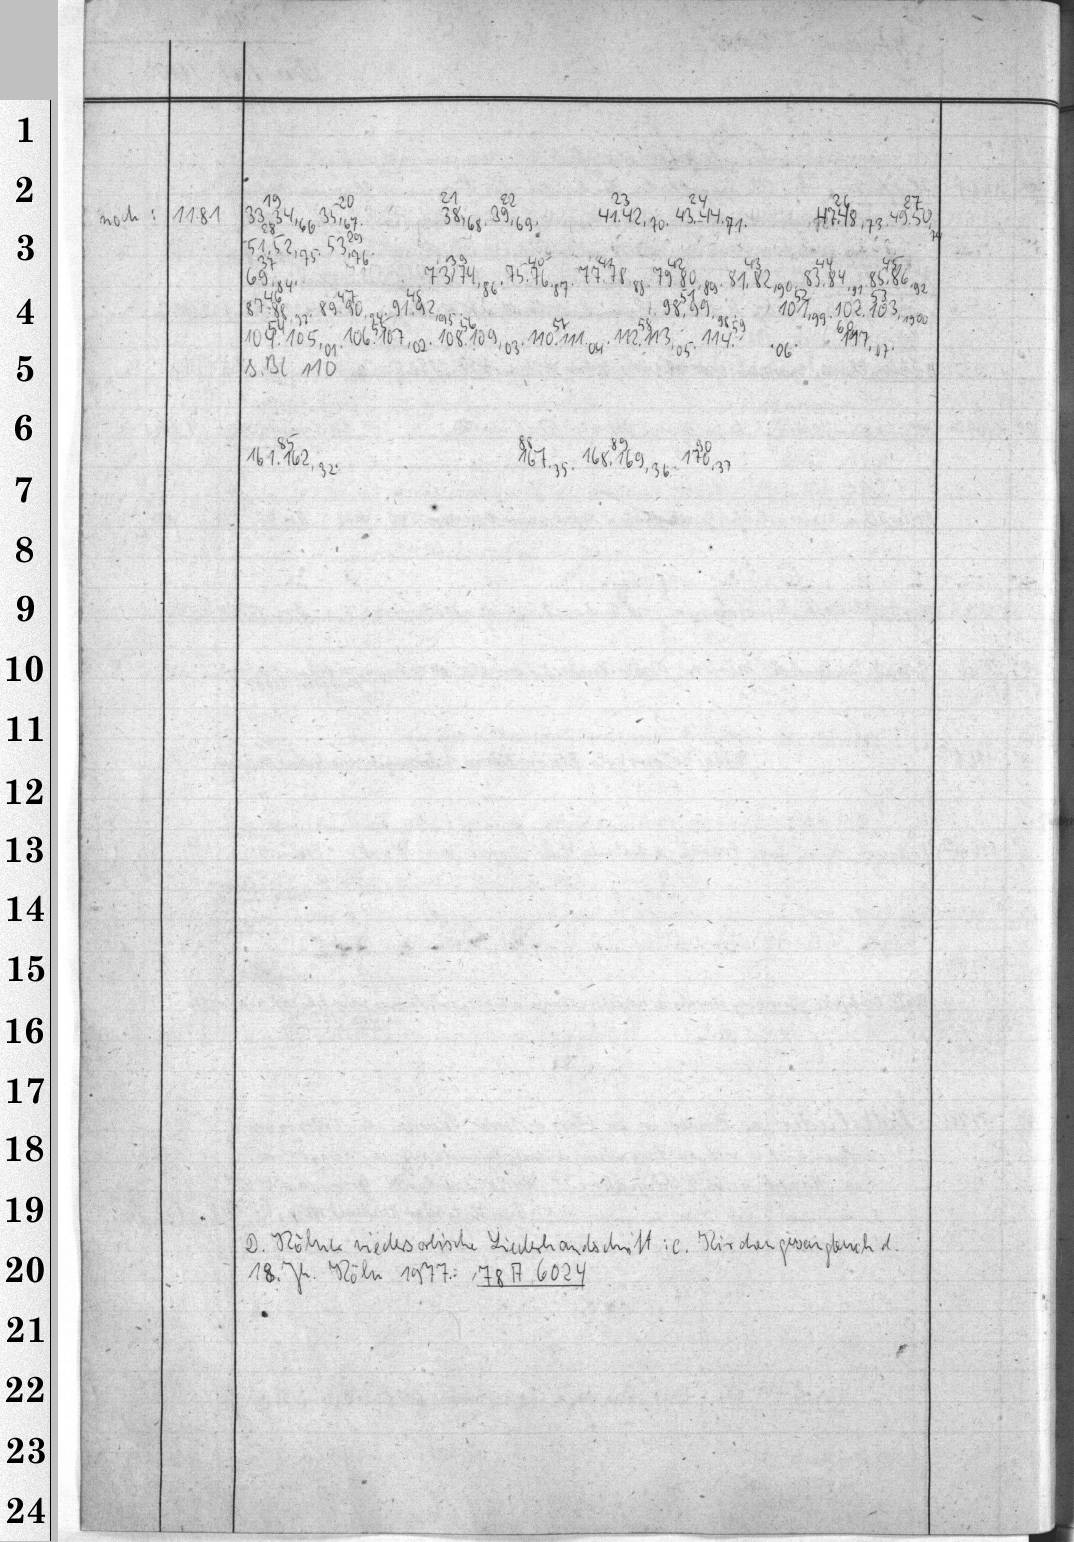 1
2
19 20 21 22 23 24 26 27
noch: 1181 33.34,66 35,67. 38,68. 39,69. 41.42,70. 43.44,71. 47.48,73. 49.50,74
3
28 29
51.52,75. 53,76.
37 39 40 41 42 43 44 45
69,84. 73.74,86. 75.76,87. 77.78,88. 79.80,89. 81.82,90. 83.84,91. 85.86,92
4
46 47 48 51 52 53
87.88,93. 89.90,94. 91.92,95. 98.99,98. 101,99. 102.103,1900
54 55 56 57 58 59 60
104.105,01. 106.107,02. 108.109,03. 110.111,04. 112.113,05. 114. .06. 117,07.
5
s. Bl 110
6
85 88 89 90
161.162,32. 167,35. 168.169,36. 170,37
7
8
9
10
11
12
13
14
15
16
17
18
19
D. Kölner niedersorbische Liederhandschrift : e. Kirchengesangbuch d.
20
18. Jh. Köln 1977: 78 A 6024
21
22
23
24